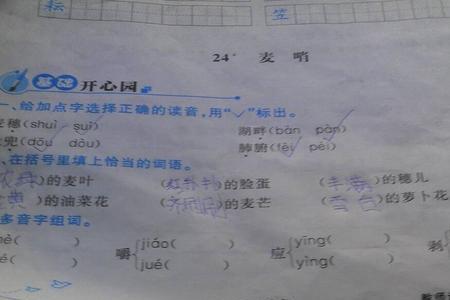 耘 笠
24* 麦 哨
基础 开心园
一、给加点字选择正确的读音,用“✓”标出。
穗(shuì suì) 湖畔(bàn pàn)
兜(dōu dòu) 肺腑(fèi pèi)
、在括号里填上恰当的词语。
的麦叶 (红扑扑)的脸蛋 (丰满)的穗儿
的油菜花 (齐刷刷)的麦芒 (雪白)的萝卜花
多音字组词。
嚼 jiáo( ) 应 yīng( ) 剥
jué( ) yìng( )